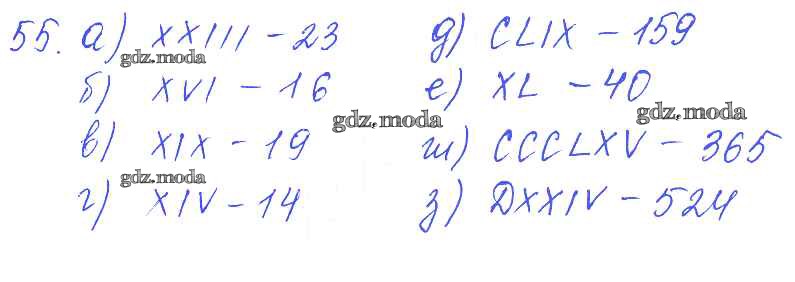 55. а) XXIII - 23
б) XVI - 16
в) XIX - 19
г) XIV - 14
д) CLIX - 159
е) XL - 40
ж) CCCLXV - 365
з) DXXIV - 524
gdz.moda
gdz.moda
gdz.moda
gdz.moda